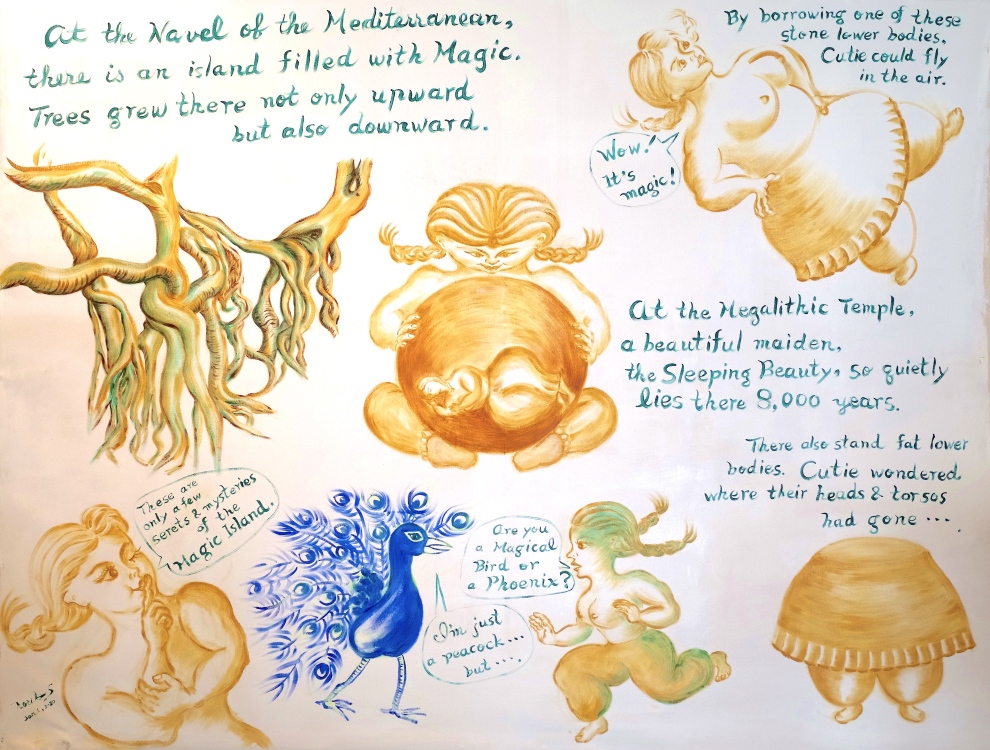 At the Navel of the Mediterranean,
there is an island filled with Magic.
Trees grew there not only upward
but also downward.
By borrowing one of these
stone lower bodies,
Cutie could fly
in the air.
Wow!
It's
magic!
At the Megalithic Temple,
a beautiful maiden,
the Sleeping Beauty, so quietly
lies there 8,000 years.
There also stand fat lower
bodies. Cutie wondered
where their heads & torsos
had gone ....
These are
only a few
serets & mysteries
of the
Magic Island.
Are you
a Magical
Bird or
a Phoenix?
I'm just
a peacock...
but ....